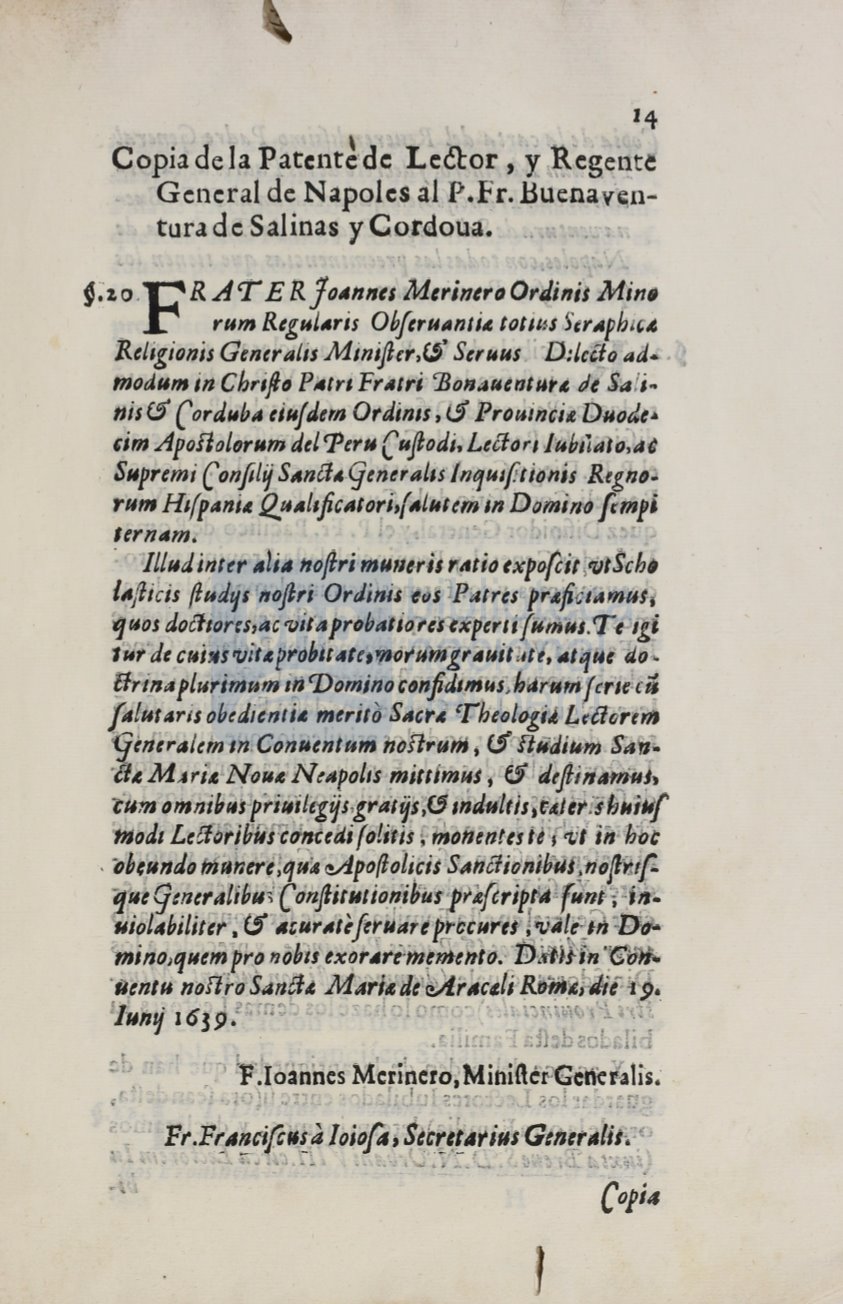 14
Copia de la Patente de Lector, y Regente
General de Napoles al P.Fr. Buenaven-
tura de Salinas y Cordoua.
§.20 FRATER Joannes Merinero Ordinis Mino
rum Regularis Obſeruantiæ totius Seraphicæ
Religionis Generalis Miniſter, & Seruus Dilecto ad-
modum in Chriſto Patri Fratri Bonauenturæ de Sali-
nis & Corduba eiuſdem Ordinis, & Prouinciæ Duode-
cim Apoſtolorum del Peru Cuſtodi, Lectori Iubilato, ac
Supremi Conſilij Sanctæ Generalis Inquiſitionis Regno-
rum Hiſpaniæ Qualificatori, ſalutem in Domino ſempi
ternam.
Illud inter alia noſtri muneris ratio expoſcit, vt Scho
laſticis ſtudijs noſtri Ordinis eos Patres præficiamus,
quos doctiores, ac vita probatiores experti ſumus. Te igi
tur de cuius vitæ probitate, morum grauitate, atque do-
ctrina plurimum in Domino confidimus, harum ſerie cũ
ſalutaris obedientiæ meritò Sacræ Theologiæ Lectorem
Generalem in Conuentum noſtrum, & ſtudium San-
ctæ Mariæ Nouæ Neapolis mittimus, & deſtinamus,
cum omnibus priuilegijs, gratijs, & indultis, cæteris huiuſ
modi Lectoribus concedi ſolitis, monentes te, vt in hoc
obeundo munere, quæ Apoſtolicis Sanctionibus, noſtriſ-
que Generalibus Conſtitutionibus præſcripta ſunt, in-
uiolabiliter, & acuratè ſeruare procures, vale in Do-
mino, quem pro nobis exorare memento. Datis in Con-
uentu noſtro Sanctæ Mariæ de Aracæli Romæ, die 19.
Iunij 1639.
F. Ioannes Merinero, Miniſter Generalis.
Fr. Franciſcus à Ioioſa, Secretarius Generalis.
Copia